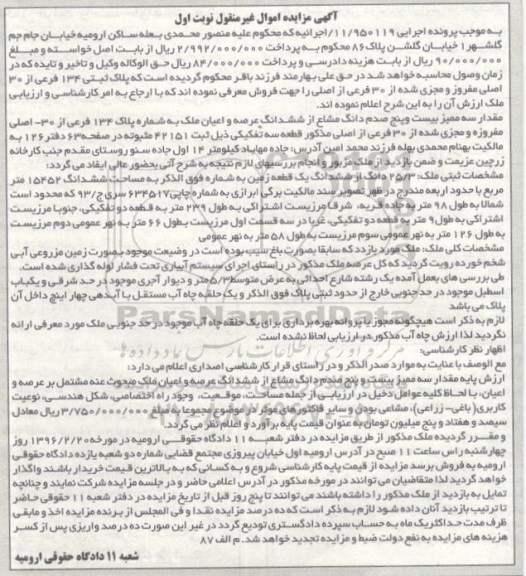 آگهی مزایده اموال غیرمنقول نوبت اول
به موجب پرونده اجرایی ۱۱/۹۵۰۱۱۹ اجرائیه که محکوم علیه منصور محمدی بعله ساکن ارومیه خیابان جام جم
گلشهر۱ خیابان گلشن پلاک۸۶ محکوم به پرداخت ۲/۹۹۲/۰۰۰/۰۰۰ ریال از بابت اصل خواسته و مبلغ
۹۰/۰۰۰/۰۰۰ ریال از بابت هزینه دادرسی و پرداخت ۸۴/۰۰۰/۰۰۰ ریال حق الوکاله وکیل و تاخیر و تایده که در
زمان وصول محاسبه خواهد شد در حق علی بهارمند فرزند باقر محکوم گردیده است که پلاک ثبتی ۱۳۴ فرعی از ۳۰
اصلی مفروز و مجزی شده از ۳۰ فرعی از اصلی را جهت فروش معرفی نموده اند که با ارجاع به امر کارشناسی و ارزیابی
ملک ارزش آن را به این شرح اعلام نموده اند.
مقدار سه ممیز بیست و پنج صدم دانگ مشاع از ششدانگ عرصه و اعیان ملک به شماره پلاک ۱۳۴ فرعی از ۳۰- اصلی
مفروزه و مجزی شده از ۳۰ فرعی از اصلی مذکور قطعه سه تفکیکی ذیل ثبت ۴۲۱۵۱ مثبوته در صفحه۶۳ دفتر ۱۲۶ به
مالکیت بهنام محمدی بهله فرزند محمد امین آدرس: جاده مهاباد کیلومتر ۱۴ اول جاده سنو روستای مقدم جنب کارخانه
زرچین عزیمت و ضمن بازدید از ملک مزبور و انجام بررسیهای لازم نتیجه به شرح آتی بحضور عالی ایفاد می گردد:
مشخصات ثبتی ملک: ۲۵/۳ دانگ از ششدانگ یک قطعه زمین به شماره فوق الذکر به مساحت ششدانگ ۱۵۴۵۲ متر
مربع با حدود اربعه مندرج در ظهر تصویر سند مالکیت برگی ابرازی به شماره چاپی ۶۳۴۵۱۷ سری ج/۹۳ که محدود است
شمالا به طول ۹۸ متر به جاده قریه، شرقا مرزیست اشتراکی به طول ۲۳۹ متر به قطعه دو تفکیکی، جنوبا مرزیست
اشتراکی به طول۹ متر به قطعه دو تفکیکی، غربا در سه قسمت اول مرزیست بطول ۶۶ متر به نهر عمومی دوم مرزیست
به طول ۱۲۶ متر به نهر عمومی سوم مرزیست به طول ۵۸ متر به نهر عمومی
مشخصات کلی ملک: ملک مورد بازدد که سابقا بصورت باغ سیب بوده است در وضعیت موجود بصورت زمین مزروعی آبی
شخم خورده رویت گردید که کل عرصه ملک مذکور در راستای اجرای سیستم آبیاری تحت فشار لوله گذاری شده است.
طی بررسی های بعمل آمده یک رشته شارع احداثی به عرض متوسط۵/۳ متر و دیوار آجری موجود در حد شرقی و یکباب
اسطبل موجود در حد جنوبی خارج از حدود ثبتی پلاک فوق الذکر و یک حلقه چاه آب مستقل با آبدهی چهار اینچ داخل آن
پلاک می باشد
لازم به ذکر است هیچگونه مجوز یا پروانه بهره برداری برای یک حلقه چاه آب موجود در حد جنوبی ملک مورد معرفی ارائه
نگردید لذا ارزش چاه آب مذکور در ارزیابی لحاظ نشده است.
اظهار نظر کارشناسی:
مع الوصف با عنایت به موارد صدرالذکر و در راستای قرار کارشناسی اصداری اعلام می دارد:
ارزش پایه مقدار سه ممیز بیست و پنج صدم دانگ مشاع از ششدانگ عرصه و اعیان ملک مبحوث عنه مشتمل بر عرصه و
اعیان، با لحاظ کلیه عوامل دخیل در ارزیابی از جمله مساحت، موقعیت، وجود راه اختصاصی، شکل هندسی، نوعیت
کاربری( باغی- زراعی)، مشاعی بودن و سایر فاکتورهای موثر در موضوع مجموعا به مبلغ ۳/۷۵۰/۰۰۰/۰۰۰ ریال معادل
سیصد و هفتاد و پنج میلیون تومان به عنوان قیمت پایه برآورد و اعلام نظر می گردد.
و مقرر گردیده ملک مذکور از طریق مزایده در دفتر شعبه ۱۱ دادگاه حقوقی ارومیه در مورخه ۱۳۹۶/۲/۲۰ روز
چهارشنبه راس ساعت ۱۱ صبح در آدرس ارومیه اول خیابان پیروزی مجتمع قضایی شماره دو شعبه یازده دادگاه حقوقی
ارومیه به فروش برسد مزایده از قیمت پایه کارشناسی شروع و به کسانی که به بالاترین قیمت خریدار باشند واگذار
خواهد گردید لذا متقاضیان می توانند در مورخه مذکور در آدرس اعلامی حاضر و در جلسه مزایده شرکت نمایند و چنانچه
تمایل به بازدید از ملک مذکور را داشته باشند می توانند تا پنج روز قبل از تاریخ مزایده در دفتر شعبه ۱۱ حقوقی حاضر
تا ترتیب بازدید آنان داده شود لازم به ذکر است که ده درصد مزایده نقدا و فی المجلس از برنده مزایده اخذ و مابقی
ظرف مدت حداکثر یک ماه به حساب سپرده دادگستری تودیع گردد در غیر این صورت ده درصد واریزی پس از کسر
هزینه های مزایده به نفع دولت ضبط و مزایده تجدید خواهد شد. م الف ۸۷
شعبه ۱۱ دادگاه حقوقی ارومیه
ParsNamadData